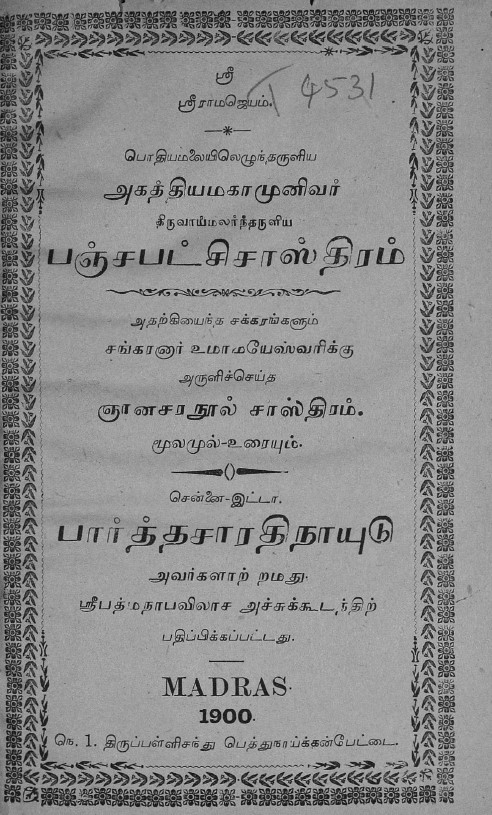 ஸ்ரீ
ஸ்ரீராமஜெயம். 4531
பொதியமலையிலெழுந்தருளிய
அகத்தியமகாமுனிவர்
திருவாய்மலர்ந்தருளிய
பஞ்சபட்சிசாஸ்திரம்
அதற்கியைந்த சக்கரங்களும்
சங்கரனார் உமாமயேஸ்வரிக்கு
அருளிச்செய்த
ஞானசரநூல் சாஸ்திரம்.
மூலமுல்-உரையும்.
சென்னை-இட்டா.
பார்த்தசாரதிநாயுடு
அவர்களாற் றமது
ஸ்ரீபத்மநாபவிலாச அச்சுக்கூடத்திற்
பதிப்பிக்கப்பட்டது.
MADRAS.
1900.
நெ. 1. திருப்பள்ளிசந்து பெத்துநாய்க்கன்பேட்டை.